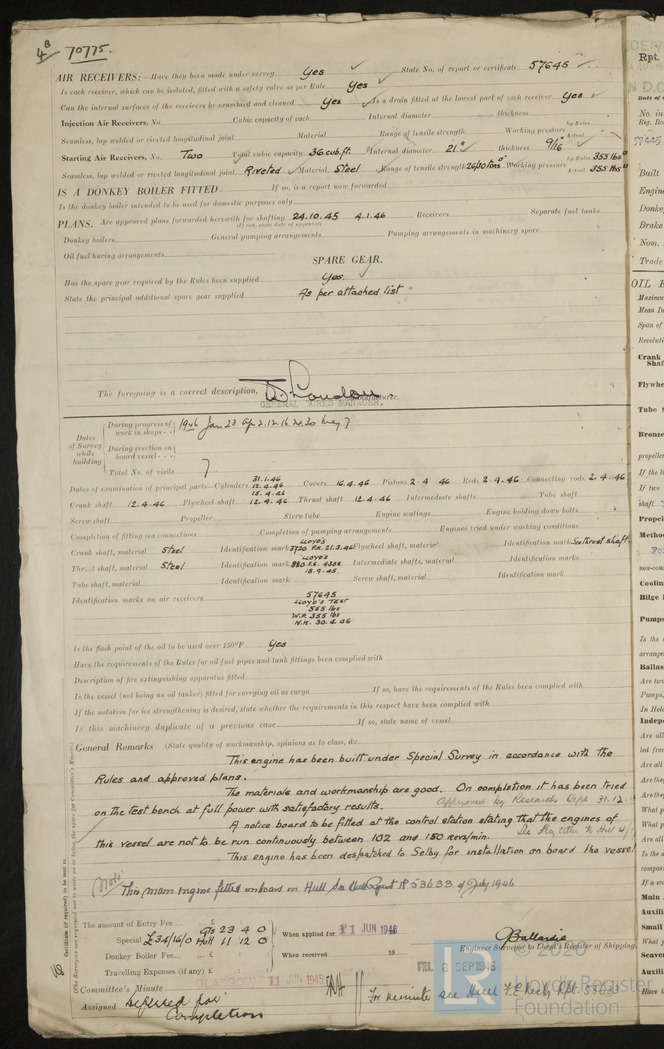 4B 70775.
AIR RECEIVERS:—Have they been made under survey Yes ✓ State No. of report or certificate 57645 ✓
Is each receiver, which can be isolated, fitted with a safety valve as per Rule Yes ✓
Can the internal surfaces of the receivers be examined and cleaned Yes ✓ Is a drain fitted at the lowest part of each receiver Yes ✓
Injection Air Receivers, No. Cubic capacity of each Internal diameter thickness
Seamless, lap welded or riveted longitudinal joint Material Range of tensile strength Working pressure by Rules Actual
Starting Air Receivers, No. Two Total cubic capacity 36 cub.ft. Internal diameter 21" thickness 9/16 ✓
Seamless, lap welded or riveted longitudinal joint Riveted Material Steel Range of tensile strength 26/30 tons Working pressure by Rules 355 lbs Actual 355 lbs
IS A DONKEY BOILER FITTED If so, is a report now forwarded
Is the donkey boiler intended to be used for domestic purposes only
PLANS. Are approved plans forwarded herewith for shafting 24.10.45 4.1.46 Receivers Separate fuel tanks
(If not, state date of approval)
Donkey boilers General pumping arrangements Pumping arrangements in machinery space
Oil fuel burning arrangements
SPARE GEAR.
Has the spare gear required by the Rules been supplied Yes. ✓
State the principal additional spare gear supplied As per attached list
The foregoing is a correct description, Manufacturer.
GENERAL WORKS MANAGER.
Dates of Survey while building
During progress of work in shops - - 1946 Jan 23 Apr 2. 12. 16 24. 30 May 7
During erection on board vessel - - -
Total No. of visits 7
Dates of examination of principal parts—Cylinders 31.1.46 12.4.46 15.4.46 Covers 16.4.46 Pistons 2.4.46 Rods 2.4.46 Connecting rods 2.4.46
Crank shaft 12.4.46 Flywheel shaft 12.4.46 Thrust shaft 12.4.46 Intermediate shafts Tube shaft
Screw shaft Propeller Stern tube Engine seatings Engine holding down bolts
Completion of fitting sea connections Completion of pumping arrangements Engines tried under working conditions
Crank shaft, material Steel Identification mark LLOYD'S 3720 P.H. 21.3.46 Flywheel shaft, material Identification mark See thrust shaft.
Thrust shaft, material Steel Identification mark LLOYD'S 18.9.45. Intermediate shafts, material Identification marks
Tube shaft, material Identification mark Screw shaft, material Identification mark
Identification marks on air receivers 57645
LLOYD'S TEST
555 lbs
W.P. 355 lbs
30.4.46
Is the flash point of the oil to be used over 150°F Yes
Have the requirements of the Rules for oil fuel pipes and tank fittings been complied with
Description of fire extinguishing apparatus fitted
Is the vessel (not being an oil tanker) fitted for carrying oil as cargo If so, have the requirements of the Rules been complied with
If the notation for ice strengthening is desired, state whether the requirements in this respect have been complied with
Is this machinery duplicate of a previous case If so, state name of vessel
General Remarks (State quality of workmanship, opinions as to class, &c.
This engine has been built under Special Survey in accordance with the
Rules and approved plans.
The materials and workmanship are good. On completion it has been tried
on the test bench at full power with satisfactory results. Approved by Research Dept 31.12.
A notice board to be fitted at the control station stating that the engines of
this vessel are not to be run continuously between 102 and 150 revs/min.
This engine has been despatched to Selby for installation on board the vessel
Note: This main engine fitted onboard in Hull See Hull Report No 53633 of July 1946
The amount of Entry Fee ... £
Special £34/16/0 Gls 23 4 0
Hull 11 12 0
Donkey Boiler Fee... £
Travelling Expenses (if any) £
When applied for 11 JUN 1946
When received 19
Engineer Surveyor to Lloyd's Register of Shipping.
Committee's Minute GLASGOW 11 JUN 1945
FRI. 6 SEP 1946
Assigned Deferred for
Completion
For minute see Hull F.E. Rpt. 53633
© 2020
Lloyd's Register
Foundation